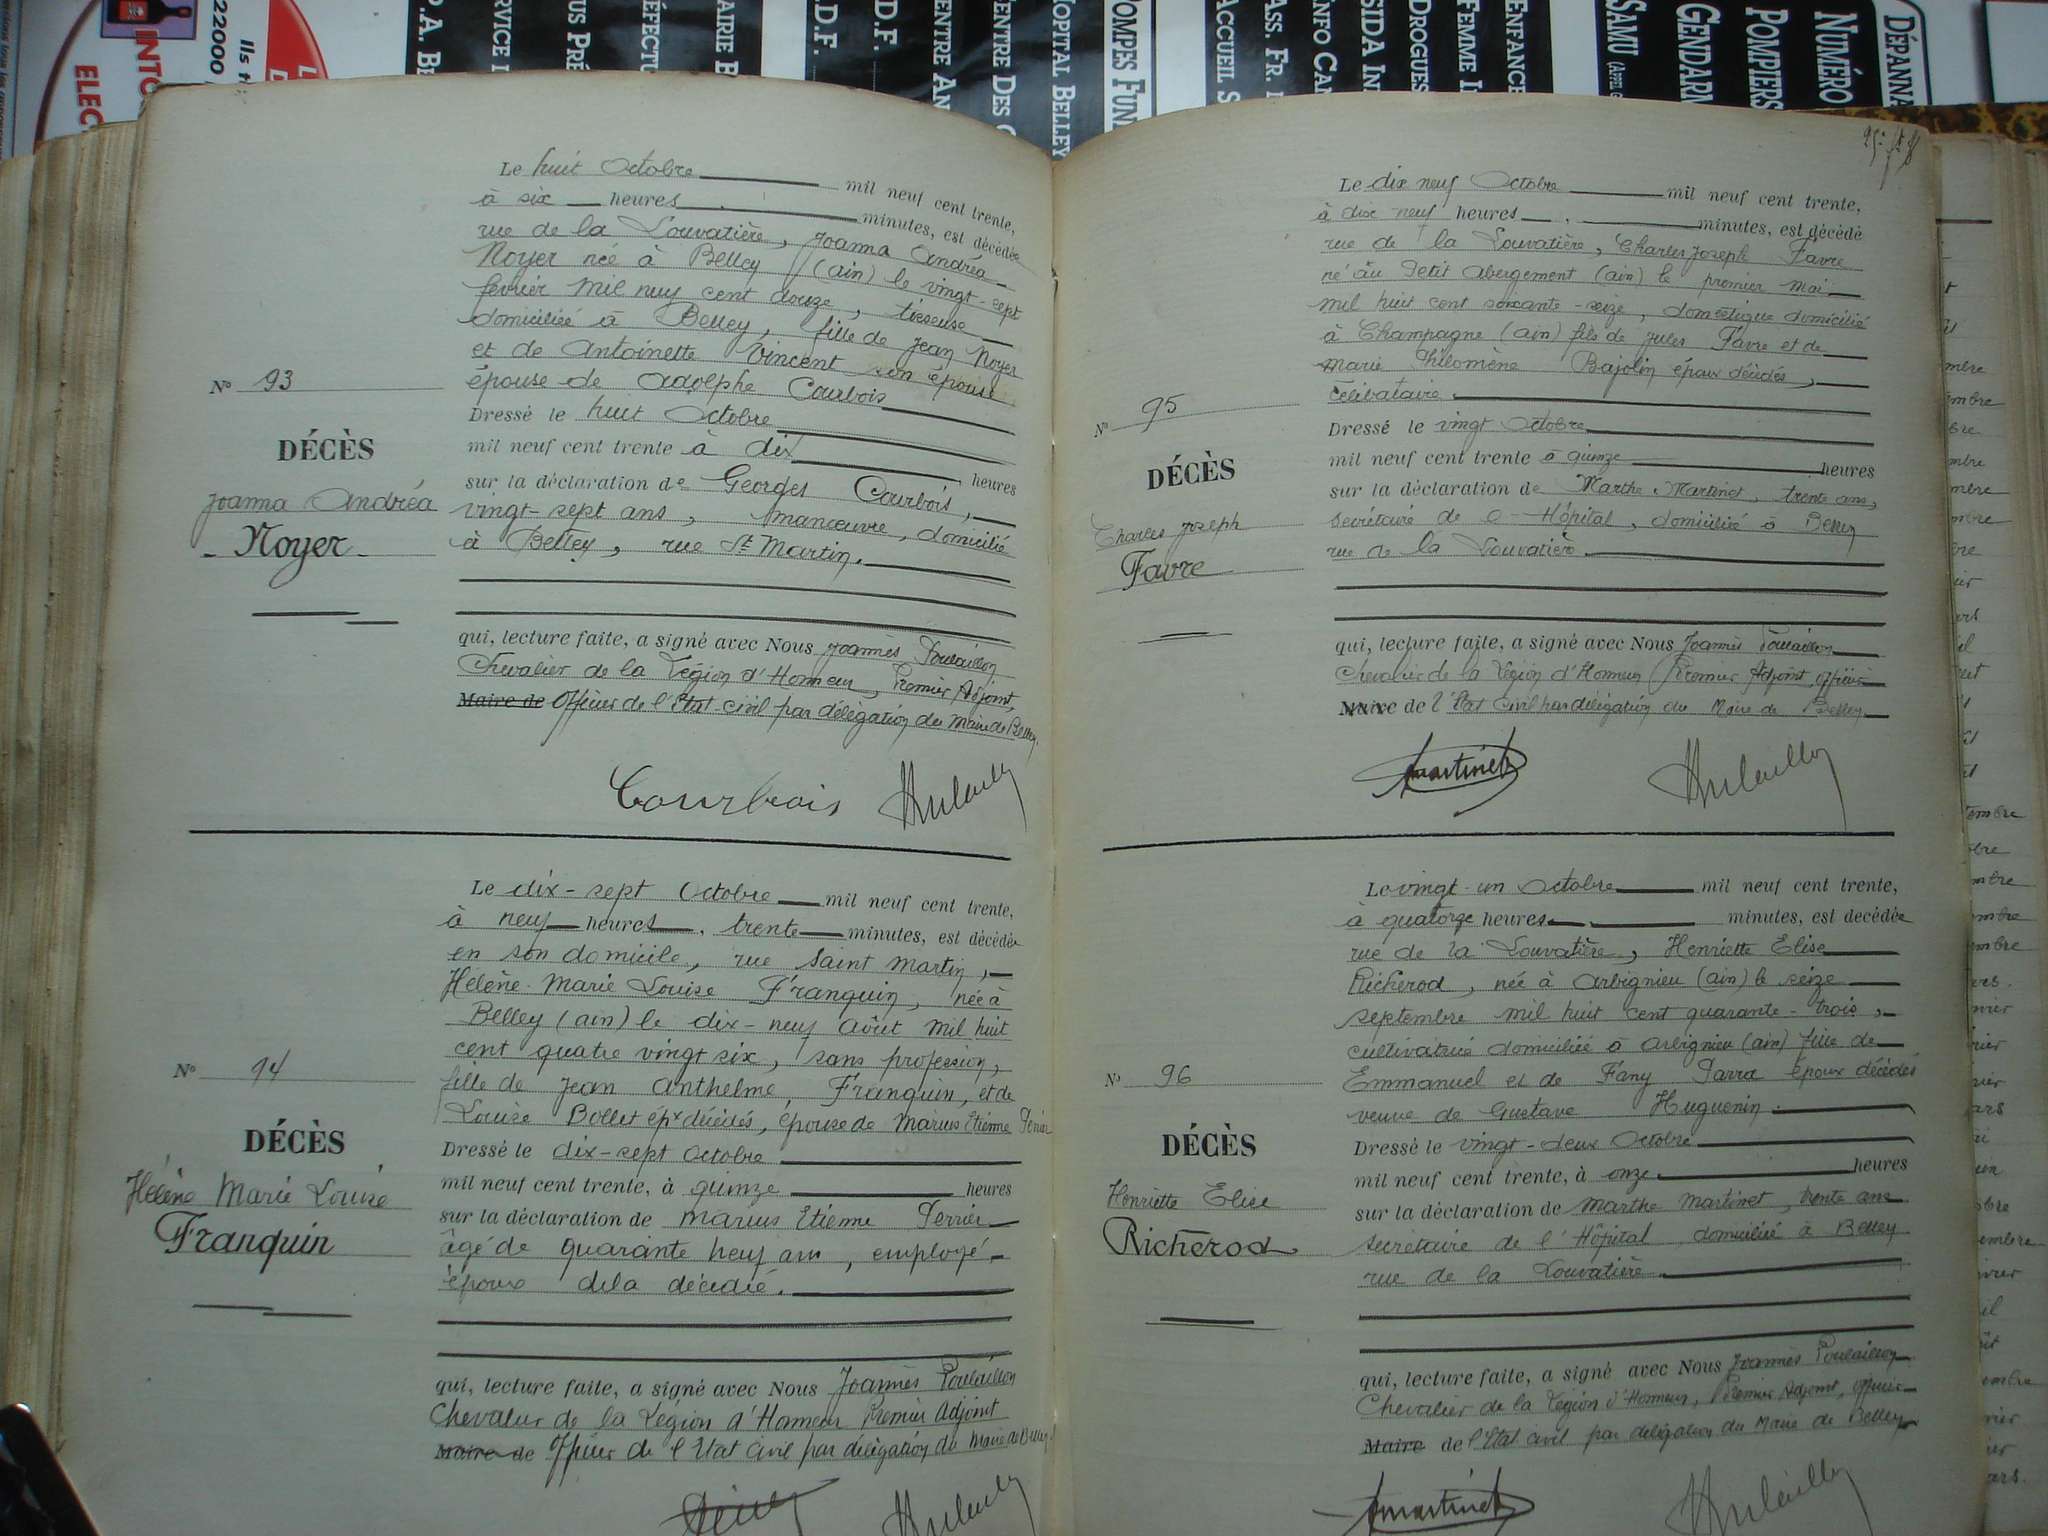 INTO
ELEC
22000
Ils
P.A. BE
ERVICE
US PRÉ
ÉFECTU
AIRIE B
.D.F.
.D.F.
ENTRE AN
ENTRE DES
HOPITAL BELLEY
POMPES FUN
ACCUEIL S
ASS. FR.
INFO CAN
SIDA IN
DROGUES
FEMME I
ENFANCE
SAMU (APPEL
GENDARM
POMPIERS
NUMÉRO
DÉPANNA
Le huit Octobre mil neuf cent trente,
à six heures minutes, est décédée
rue de la Louvatière, Joanna Andréa
Noyer née à Belley (ain) le vingt-sept
février mil neuf cent douze, tisseuse
domiciliée à Belley, fille de Jean Noyer
et de Antoinette Vincent son épouse
épouse de Adolphe Courbois
Dressé le huit Octobre
mil neuf cent trente à dix heures
sur la déclaration de Georges Courbois,
vingt-sept ans, manœuvre, domicilié
à Belley, rue St Martin.
N° 93
DÉCÈS
Joanna Andréa
- Noyer -
qui, lecture faite, a signé avec Nous Joannès Poulaillon
Chevalier de la Légion d'Honneur, Premier Adjoint,
Maire de Officier de l'Etat-civil par délégation du Maire de Belley.
Courbois
Le dix-sept Octobre mil neuf cent trente,
à neuf heures, trente minutes, est décédée
en son domicile, rue Saint Martin,
Hélène Marie Louise Franquin, née à
Belley (ain) le dix-neuf août mil huit
cent quatre vingt six, sans profession,
fille de Jean Anthelme Franquin, et de
Louise Bollet épx décédés, épouse de Marius Etienne Perrier
Dressé le dix-sept Octobre
mil neuf cent trente, à quinze heures
sur la déclaration de Marius Etienne Perrier
âgé de quarante neuf ans, employé
époux de la décédée.
N° 94
DÉCÈS
Hélène Marie Louise
Franquin
qui, lecture faite, a signé avec Nous Joannès Poulaillon
Chevalier de la Légion d'Honneur Premier Adjoint
Maire de Officier de l'Etat civil par délégation du Maire de Belley
Le dix neuf Octobre mil neuf cent trente,
à dix-neuf heures minutes, est décédé
rue de la Louvatière, Charles Joseph Favre
né au Petit Abergement (ain) le premier mai
mil huit cent soixante-seize, domestique domicilié
à Champagne (ain) fils de Jules Favre et de
Marie Philomène Bajolin époux décédés,
célibataire.
Dressé le vingt Octobre
mil neuf cent trente à quinze heures
sur la déclaration de Marthe Martinet, trente ans,
secrétaire de Hôpital, domiciliée à Belley
rue de la Louvatière.
N° 95
DÉCÈS
Charles Joseph
Favre
qui, lecture faite, a signé avec Nous Joannès Poulaillon
Chevalier de la Légion d'Honneur Premier Adjoint, officier
Maire de l'Etat Civil par délégation du Maire de Belley
Martinet
Le vingt-un Octobre mil neuf cent trente,
à quatorze heures minutes, est décédée
rue de la Louvatière, Henriette Elise
Richerod, née à Arbignieu (ain) le seize
septembre mil huit cent quarante-trois,
cultivatrice domiciliée à Arbignieu (ain) fille de
Emmanuel et de Fany Parra époux décédés
veuve de Gustave Huguenin.
Dressé le vingt-deux Octobre
mil neuf cent trente, à onze heures
sur la déclaration de Marthe Martinet, trente ans
secrétaire de l'Hôpital domiciliée à Belley
rue de la Louvatière.
N° 96
DÉCÈS
Henriette Elise
Richerod
qui, lecture faite, a signé avec Nous Joannès Poulaillon
Chevalier de la Légion d'Honneur, Premier Adjoint, officier
Maire de l'Etat civil par délégation du Maire de Belley
Martinet